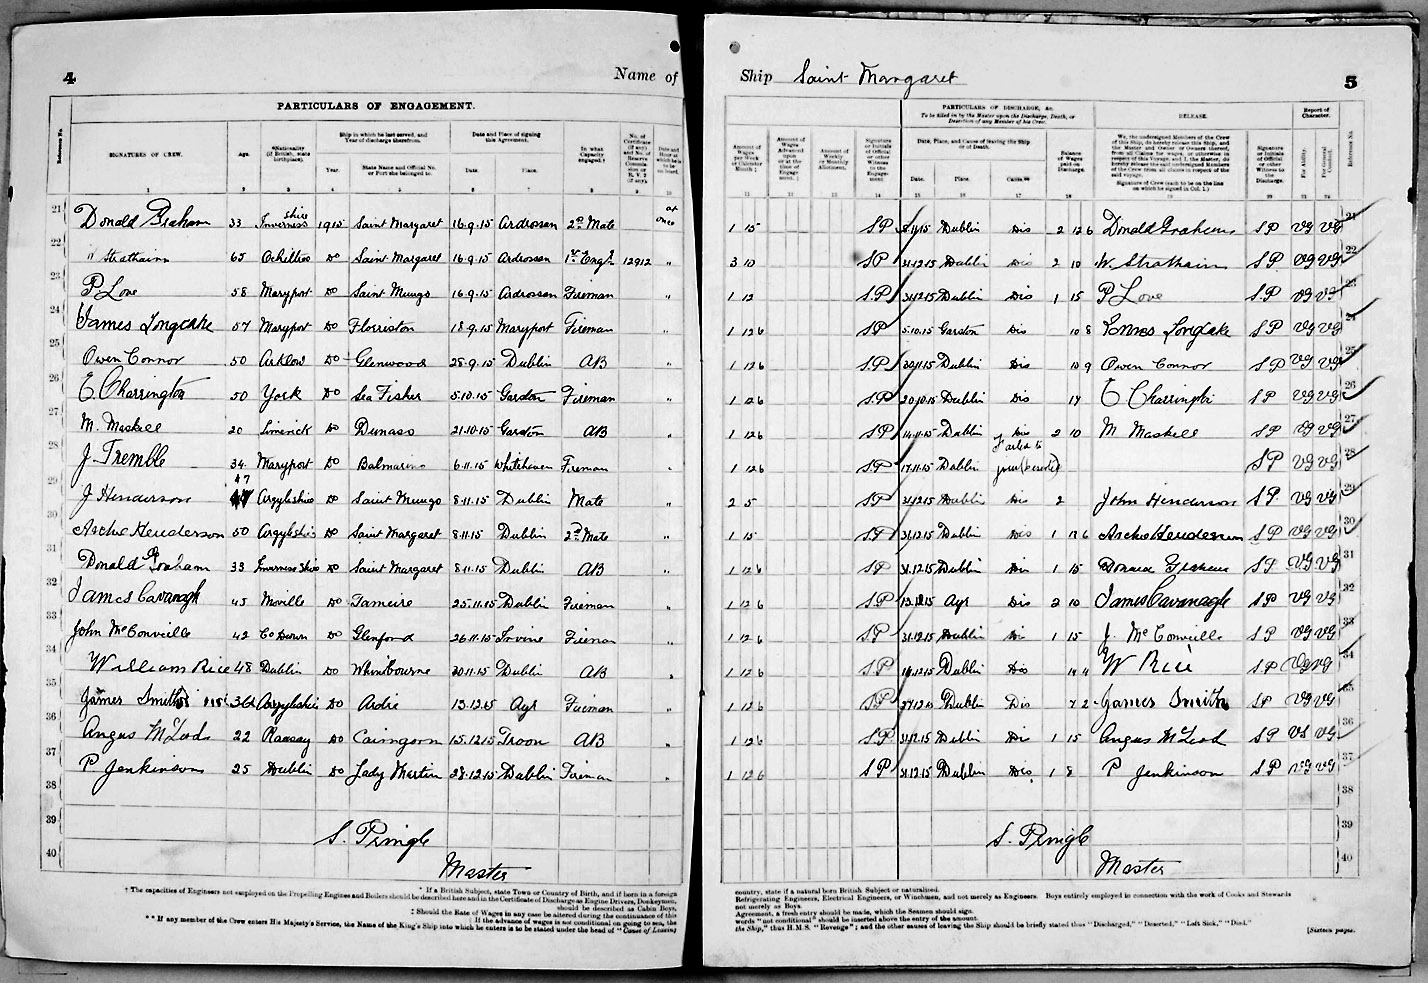 4
Name of
PARTICULARS OF ENGAGEMENT.
Reference No.
SIGNATURES OF CREW.
Age.
*Nationality (if British, state birthplace).
Ship in which he last served, and Year of discharge therefrom.
Year.
State Name and Official No. or Port she belonged to.
Date and Place of signing this Agreement.
Date.
Place.
In what Capacity engaged.†
No. of Certificate (if any)
Date and Hour at which he is to be on board.
1 2 3 4 5 6 7 8 9 10
21 Donald Graham 33 Invernessshire 1915 Saint Margaret 16.9.15 Ardrossan 2nd Mate at once
22 " Strathairn 65 Do Saint Margaret 16.9.15 Ardrossan 1st Engr 12912 "
23 P Love 58 Maryport Do Saint Mungo 16.9.15 Ardrossan Fireman "
24 James Longcake 57 Maryport Do Florriston 18.9.15 Maryport Fireman "
25 Owen Connor 50 Arklow Do Glenwood 28.9.15 Dublin AB "
26 E Charrington 50 York Do Sea Fisher 5.10.15 Garston Fireman "
27 M. Maskell 20 Limerick Do Dunass 21.10.15 Garston AB "
28 J. Tremble 34 Maryport Do Balmarino 6.11.15 Whitehaven Fireman "
29 J Henderson 47 Argyleshire Do Saint Mungo 8.11.15 Dublin Mate "
30 Archie Henderson 50 Argyleshire Do Saint Margaret 8.11.15 Dublin 2nd Mate "
31 Donald Graham 33 Inverness Shire Do Saint Margaret 8.11.15 Dublin AB "
32 James Cavanagh 45 Moville Do 25.11.15 Dublin Fireman "
33 John McConville 42 Co Down Do Glenford 26.11.15 Irvine Fireman "
34 William Rice 48 Dublin Do Whinbourne 30.11.15 Dublin AB "
35 James Smith 36 Argyleshire Do 13.12.15 Ayr Fireman "
36 Angus McLeod 22 Ramsay Do Cairngorm 15.12.15 Troon AB "
37 P. Jenkinson 25 Dublin Do Lady Martin 28.12.15 Dublin Fireman "
38
39
40
S. Pringle
Master
* If a British Subject, state Town or Country of Birth, and if born in a foreign
† The capacities of Engineers not employed on the Propelling Engines and Boilers should be described here and in the Certificate of Discharge as Engine Drivers, Donkeymen,
should be described as Cabin Boys,
‡ Should the Rate of Wages in any case be altered during the continuance of this
If the advance of wages is not conditional on going to sea, the
** If any member of the Crew enters His Majesty's Service, the Name of the King's Ship into which he enters is to be stated under the head of "Cause of Leaving
Ship Saint Margaret
5
PARTICULARS OF DISCHARGE, &c.
To be filled in by the Master upon the Discharge, Death, or Desertion of any Member of his Crew.
RELEASE.
Report of Character.
Amount of Wages per Week or Calendar Month ‡
Amount of Wages Advanced upon or at the time of Engagement.
Amount of Weekly or Monthly Allotment.
Signature or Initials of Official or other Witness to the Engagement.
Date, Place, and Cause of leaving the Ship or of Death.
Date.
Place.
Cause.**
Balance of Wages paid on Discharge.
We, the undersigned Members of the Crew of this Ship, do hereby release this Ship, and the Master and Owner or Owners thereof, from all Claims for wages, or otherwise in respect of this Voyage, and I, the Master, do hereby release the undersigned Members of the Crew from all claims in respect of the said voyage.
Signature of Crew (each to be on the line on which he signed in Col. 1.)
Signature or Initials of Official or other Witness to the Discharge.
For Ability.
For General Conduct.
Reference No.
1 15 SP 8.11.15 Dublin Dis 2 12 6 Donald Graham SP VG VG 21
3 10 SP 31.12.15 Dublin Dis 2 10 W. Strathairn SP VG VG 22
1 12 S.P 31.12.15 Dublin Dis 1 15 P Love S.P VG VG 23
1 12 6 SP 5.10.15 Garston Dis 10 8 James Longcake SP VG VG 24
1 12 6 S.P 30.11.15 Dublin Dis 10 9 Owen Connor SP VG VG 25
1 12 6 S.P 20.10.15 Dublin Dis 14 E Charrington SP VG VG 26
1 12 6 SP 14.11.15 Dublin Dis 2 10 M Maskell SP VG VG 27
1 12 6 S.P 17.11.15 Dublin Failed to join SP VG VG 28
2 5 SP 31.12.15 Dublin Dis 2 John Henderson SP. VG VG 29
1 15 S.P 31.12.15 Dublin Dis 1 13 6 Archie Henderson SP VG VG 30
1 12 6 SP 31.12.15 Dublin Dis 1 15 Donald Graham SP VG VG 31
1 12 6 SP Ayr Dis 2 10 James Cavanagh SP VG VG 32
1 12 6 SP 31.12.15 Dublin Dis 1 15 J. McConville SP VG VG 33
1 12 6 SP Dublin Dis 14 4 W Rice SP VG VG 34
1 12 6 SP 27.12.15 Dublin Dis 7 2 James Smith SP VG VG 35
1 12 6 SP 31.12.15 Dublin Dis 1 15 Angus McLeod SP VG VG 36
1 12 6 SP 31.12.15 Dublin Dis 1 8 P Jenkinson SP VG VG 37
38
39
40
S. Pringle
Master
country, state if a natural born British Subject or naturalised.
Refrigerating Engineers, Electrical Engineers, or Winchmen, and not merely as Engineers. Boys entirely employed in connection with the work of Cooks and Stewards
not merely as Boys.
Agreement, a fresh entry should be made, which the Seamen should sign.
words "not conditional" should be inserted above the entry of the amount.
the Ship," thus H.M.S. "Revenge"; and the other causes of leaving the Ship should be briefly stated thus "Discharged," "Deserted," "Left Sick," "Died."
[Sixteen pages.